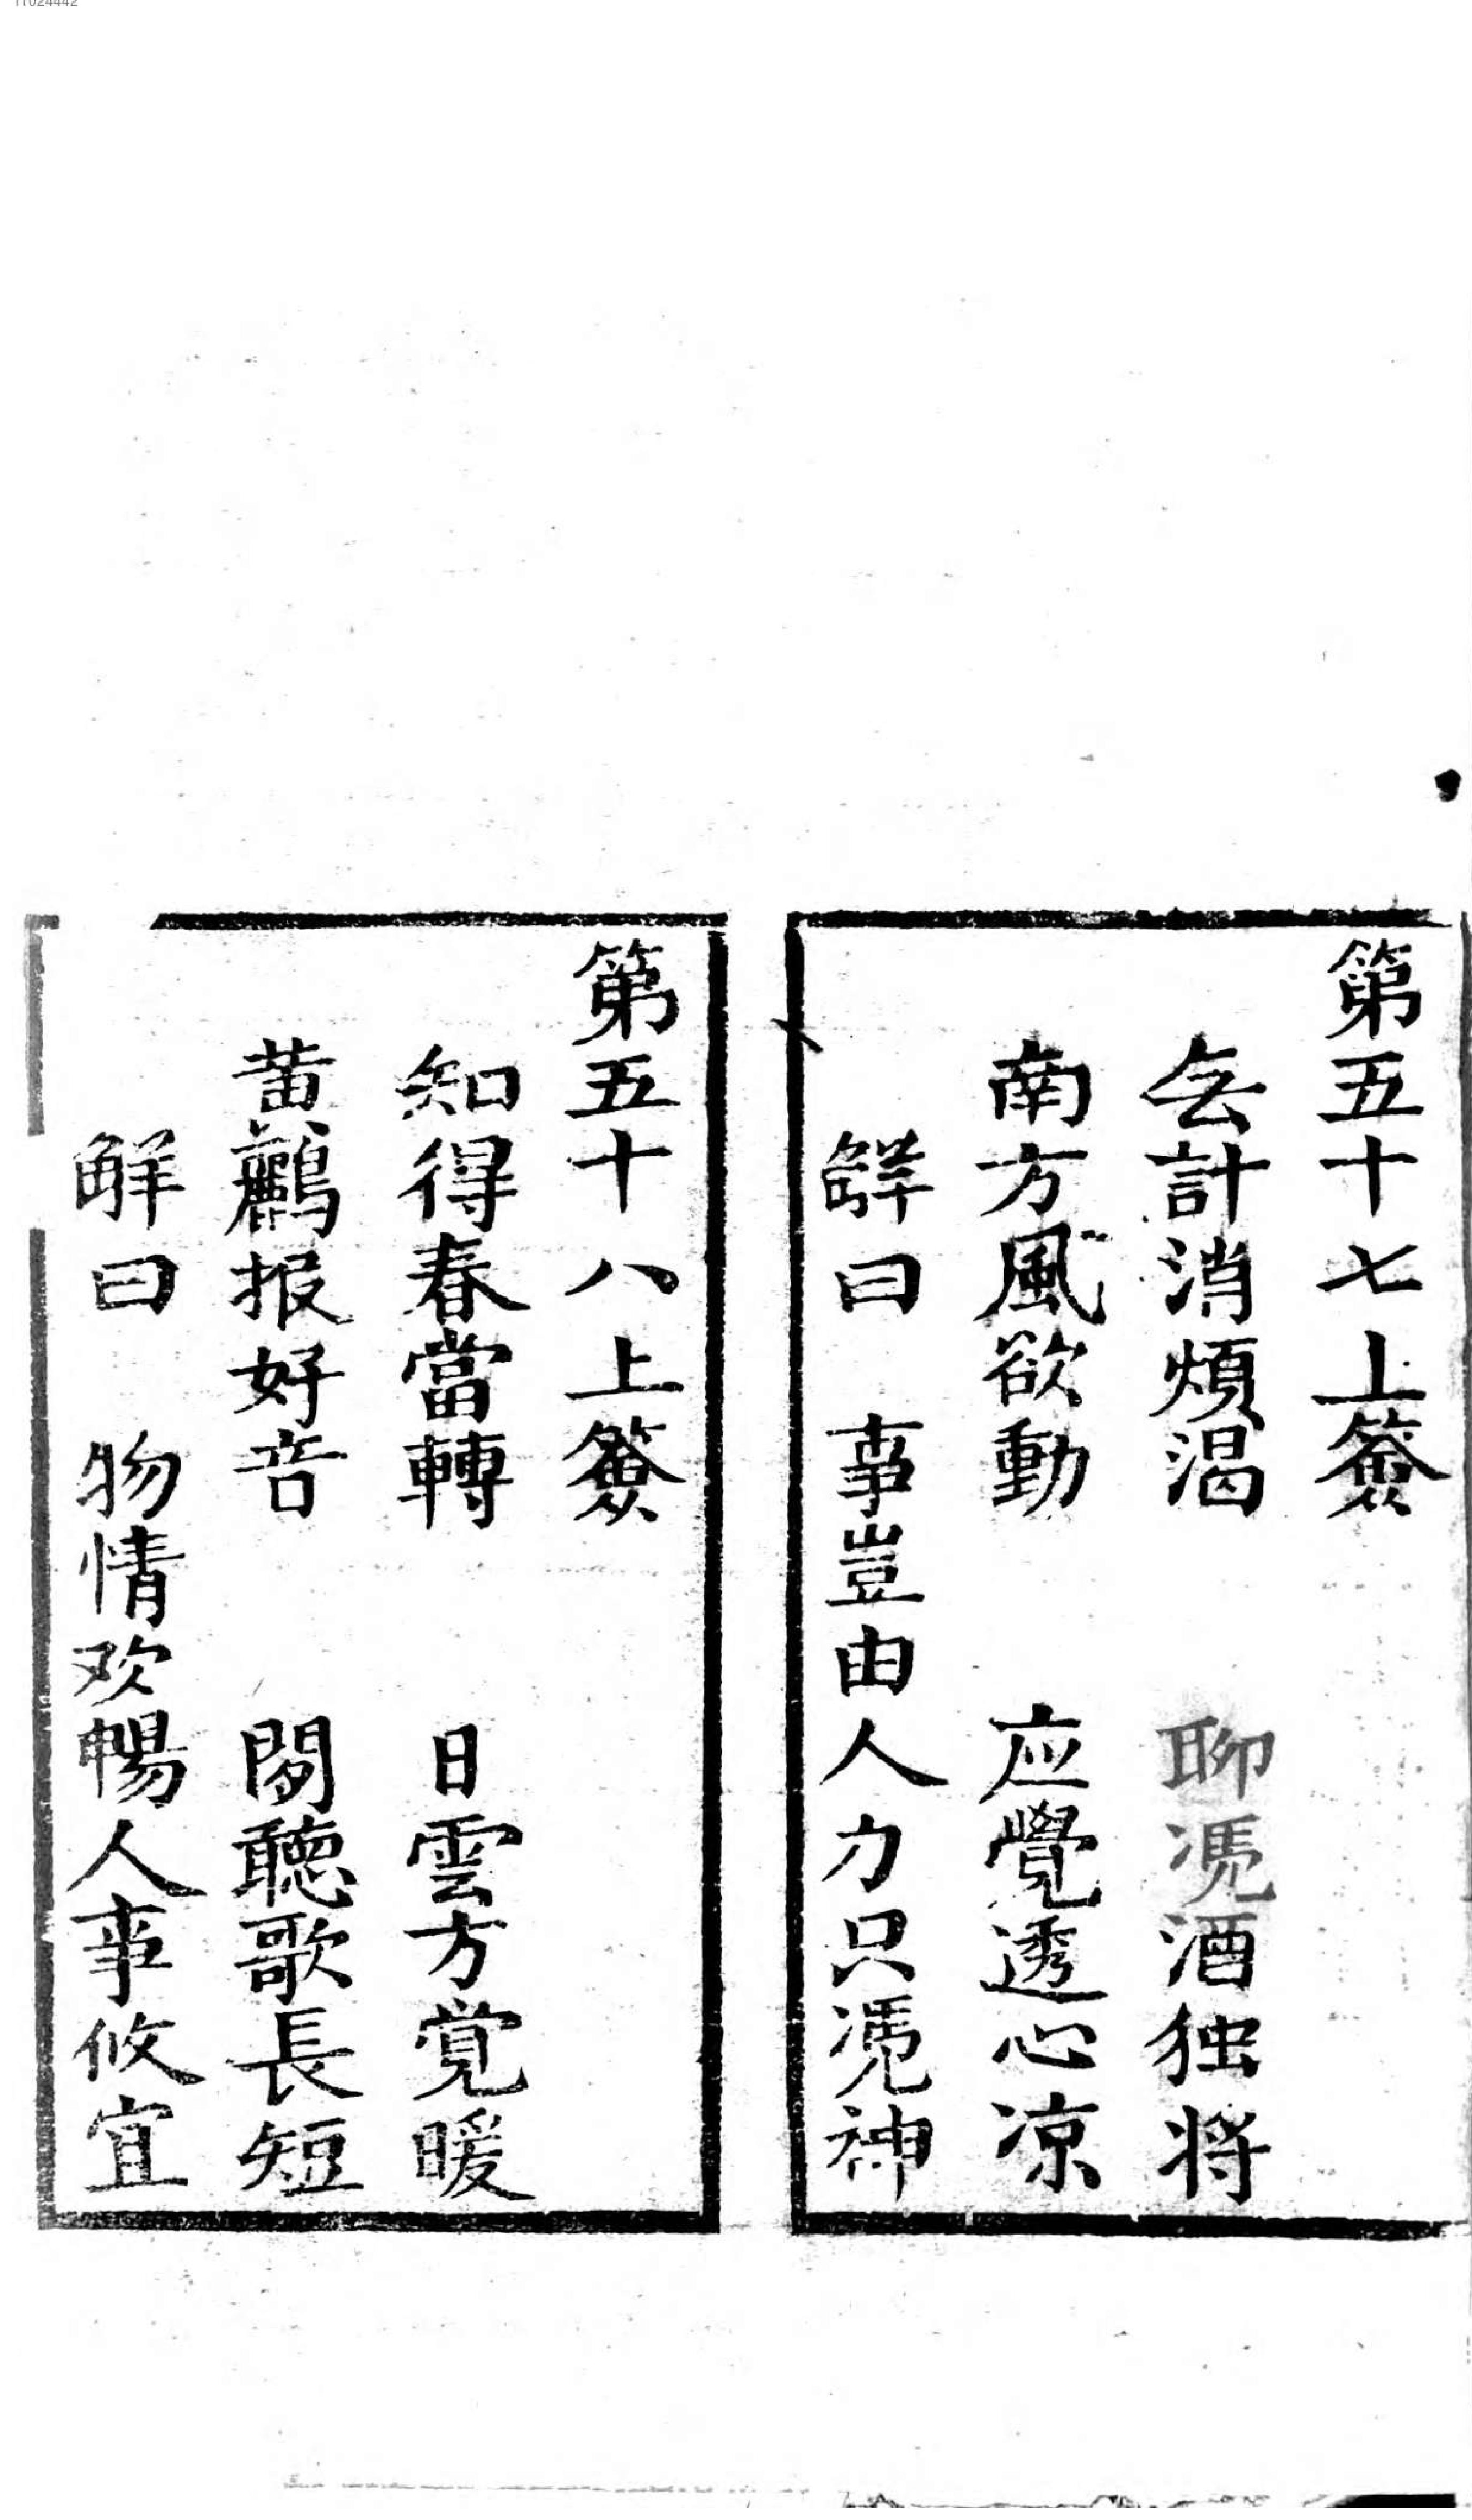 11024442
第五十七上簽
無計消煩渴　聊凴酒独将
南方風欲動　应覺透心凉
觧曰　事豈由人力只凴神
第五十八上簽
知得春當轉　日雲方覚暖
黄鸝报好音　閑聽歌長短
觧曰　物情欢暢人事攸宜